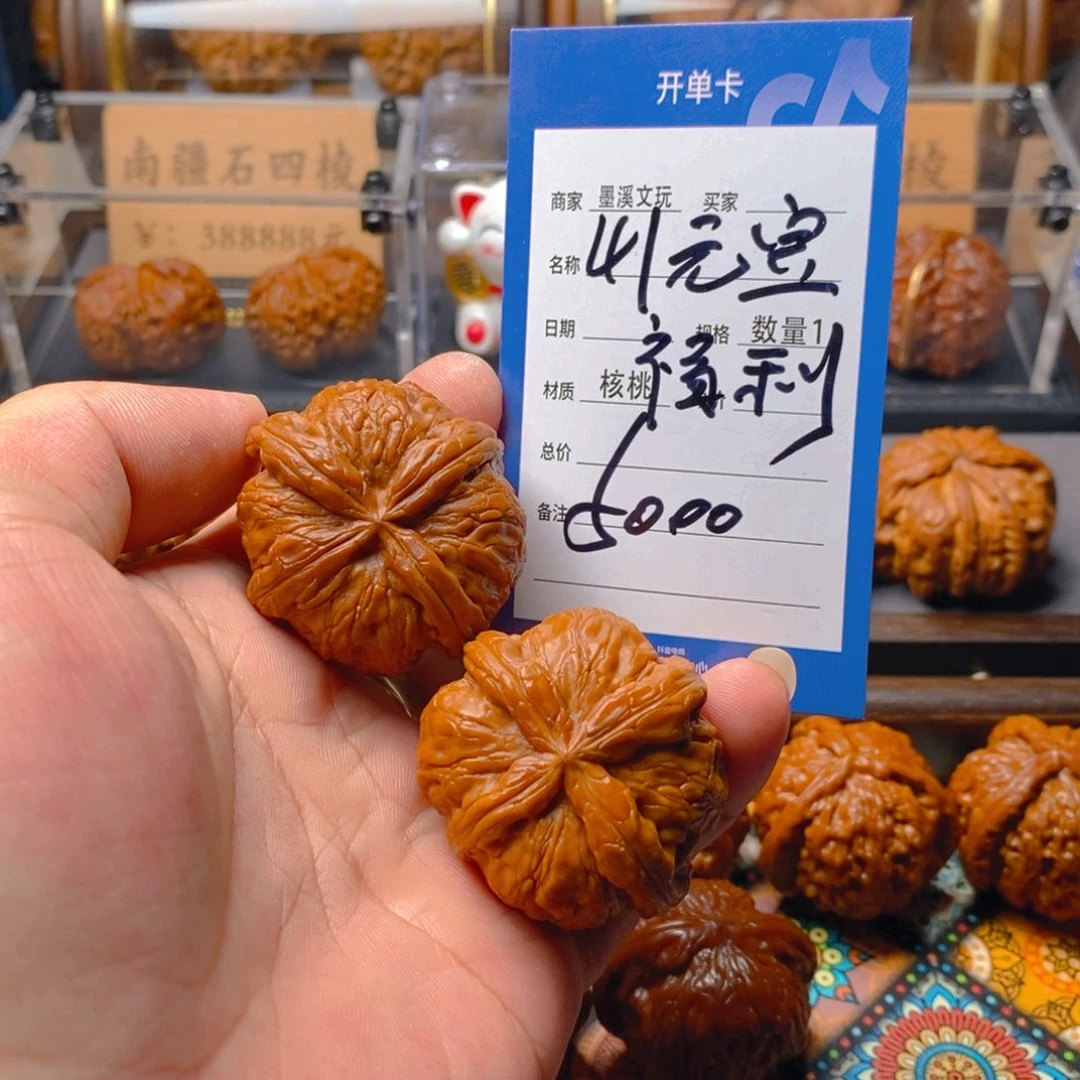 开单卡
商家 墨溪文玩 买家
名称 41元宝
日期 规格 数量1
福利
材质 核桃
总价
备注 5000
抖音电商
南疆石四棱
¥：388888元
棱